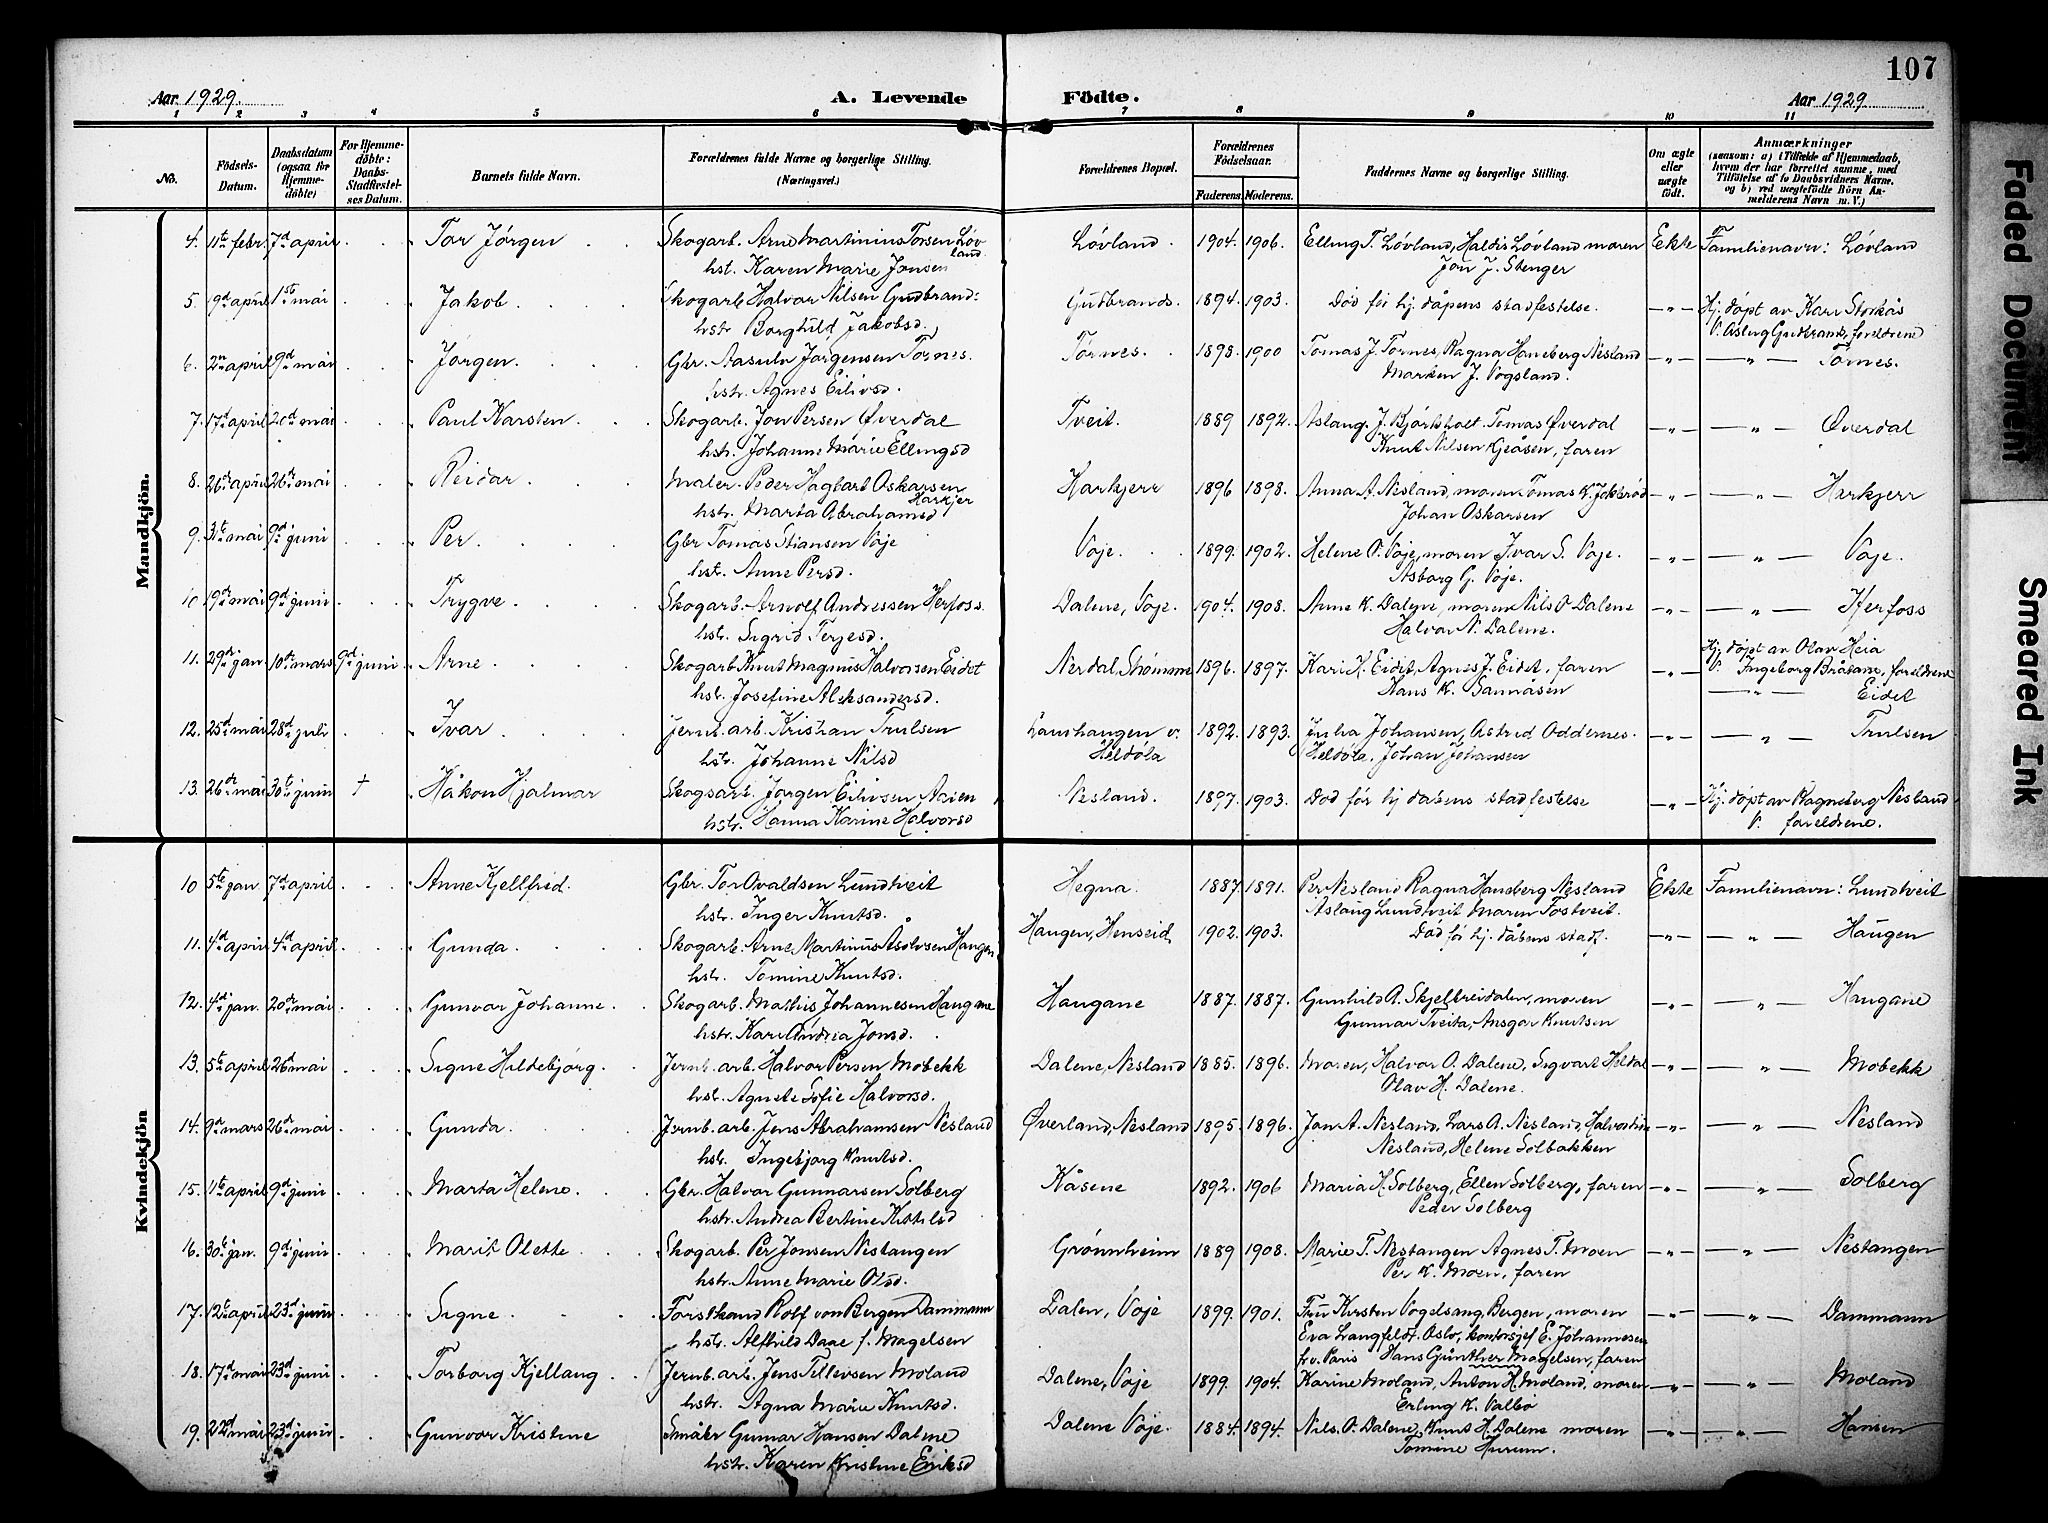 107
Aar 1929.
A. Levende Födte.
Aar 1929
1 2 3 4 5 6 7 8 9 10 11
No.
Födsels-Datum.
Daabsdatum (ogsaa for Hjemmedöbte)
For Hjemmedöbte: Daabs-Stadfæstelses Datum.
Barnets fulde Navn.
Forældrenes fulde Navne og borgerlige Stilling. (Næringsvei.)
Forældrenes Bopæl.
Forældrenes Födselsaar.
Faderens. Moderens.
Faddernes Navne og borgerlige Stilling.
Om ægte eller uægte födt.
Anmærkninger
(saasom: a) i Tilfælde af Hjemmedaab, hvem der har forrettet samme, med Tilföielse af to Daabsvidners Navne. og b) ved uægtefödte Börn Anmelderens Navn m. V.)
Mandkjön.
4. 11te febr. 7d april Tor Jörgen Skogarb. Arne Martinius Torsen Løvland Løvland. 1904. 1906. Elling T. Løvland, Haldis Løvland moren Ekte Familienavn: Løvland
hst. Karen Marie Jonsen Jon J. Stenger
5. 9d april 1st mai Jakob Skogarb Halvor Nilsen Gudbrands: Gudbrands. 1894. 1903. Död för hj. dåpens stadfestelse. -„- Hj. döpt av Kari Storkås
hstr Borghild Jakobsd. V. Asberg Gudbrands, foreldrene
6. 2n april 9d mai Jørgen. Gbr. Aasulv Jørgensen Tornes. Tornes. 1898. 1900 Tomas J. Tornes, Ragna Haneberg Nesland -„- -„- Tornes.
hstr. Agnes Eilivsd. Marken J. Vogsland.
7. 17d april 20d mai Paul Karsten Skogarb. Jon Persen Øverdal Tveit. 1889 1892. Aslaug. J. Bjórkholt. Tomas Øverdal -„- -„- Øverdal
hstr. Johanne Marie Ellingsd Knut Nilsen Kjeåsen, faren
8. 26de april 26de mai Reidar Maler. Peder Hagbart Oskarsen Harkjerr Harkjerr 1896 1898. Anna A. Nesland, moren Tomas K. -„- -„- Harkjerr
hstr. Marta Abrahamsd Johan Oskarsen
9. 31te mai 9d juni Per. Gbr Tomas Stiansen Voje Voje. 1899. 1902. Helene O. Voje, moren Ivar S. Voje. -„- -„- Voje.
hst. Anne Persd. Asborg G. Voje.
10 19de mai 9d juni Trygve Skogarb. Arnolf Andressen Herfoss Dalene, Voje. 1904. 1908. Anne K. Dalene, moren Nils O Dalene -„- -„- Herfoss
hst. Sigrid Terjesd. Halvor N. Dalene.
11. 29de jan 10de mars 9d juni Arne Skogarb Knut Magnus Halvorsen Eidet Nerdal, Strømme 1896. 1897. Kari H. Eidet, Agnes J. Eidet, faren -„- Hj. döpt av Olav Heia
hst. Josefine Aleksandersd. Hans K. Sannåsen V. Ingeborg Bråtane, foreldrene
-„- Eidet
12. 25d mai 28d juli Ivar jernb. arb. Kristian Trulsen Laushaugen v. Heldøla 1892. 1893. Julia Johansen, Astrid Oddernes. -„- -„- Trulsen
hstr. Johanne Nilsd Heldøla. Johan Johansen
13. 26de mai 30te juni † Håkon Hjalmar Skogsarb. Jørgen Eilivsen Asien Nesland. 1897. 1903. Död før hj dabens stadfestelse -„- Hj. döpt av Ragneberg Nesland
hstr. Hanna Karine Halvorsd V. foreldrene.
Kvindekjön
10 5te jan 7d april Anne Kjellfrid. Gbr. Tor Ovaldsen Lundtveit Hegna. 1887. 1891. Per Nesland Ragna Haneberg Nesland Ekte Familienavn: Lundtveit
hst. Inger Knutsd. Aslaug Lundtveit Maren Tostveit.
11. 4d april 4d april Gunda Skogarb. Arne Martinus Asolvsen Haugen, Haugen, Henseid, 1902. 1903. Død før hj. dåbens stadf. -„- -„- Haugen
hst. Tomine Knutsd.
12. 4d jan. 20de mai Gunvor Johanne. Skogarb. Mathis Johannesen Haugane Haugane 1887. 1887. Gunhild A. Skjelbreidalen, moren -„- -„- Haugane
hstr. Kari Andrea Jonsd. Gunnar Tveita, Ansgar Knutsen
13. 5te april 26 mai Signe Hildebjørg. Jernb. arb. Halvor Persen Mobekk Dalene, Nesland 1885. 1896. Moren, Halvor O. Dalene, Sigvart Heldal -„- -„- Mobekk
hst. Agnete Sofie Halvorsd. Olav H. Dalene.
14. 9de mars 26de mai Gunda. Jernb. arb. Jens Abrahamsen Nesland Øverland, Nesland 1895. 1896. Jon A. Nesland, Lars A. Nesland, Halvorsin -„- -„- Nesland
hst. Ingebjorg Knutsd. Nesland, Helene Solbakken
15. 11te april 9d juni Marta Helene. Gbr. Halvor Gunnarsen Solberg Kåsene 1892. 1906 Maria K. Solberg, Ellen Solberg, faren -„- -„- Solberg
hstr. Andrea Bertine Kittilsd Peder Solberg
16. 30te jan. 9d juni Marit Olette Skogarb. Per Jonsen Nestangen Grønnheim 1889 1908. Marie T. Nestangen Agnes T. Moen -„- -„- Nestangen
hstr. Anne Marie Olsd. Per K. Moen, faren
17. 12te april 23d juni Signe Forstkand Rolf von Bergen Dammann Dalen, Voje 1899. 1901. Frü Kirsten Vogelsang, Bergen, moren -„- -„- Dammann
hstr. Alfhild Daae f. Magelsen Eva Langfeldt. Oslo, kontorsjef E. Johannesen
frv. Paris Hans Günther Magelsen, faren
18. 17d mai 23d juni Torborg Kjellaug Jernb. arb. Jens Tellevsen Moland Dalene, Voje 1899. 1904. Karine Moland, Anton H. Moland, moren -„- -„- Moland
hstr. Agna Marie Knutsd. Erling K. Valbø
19. 22d mai 23d juni Gunvor Kristine Småbr Gunnar Hansen Dalene Dalene Voje. 1884. 1894. Nils. O. Dalene, Knut H. Dalene moren -„- -„- Hansen
hstr. Karen Kristine Eriksd Tomine Hurum.
Faded Document
Smeared Ink